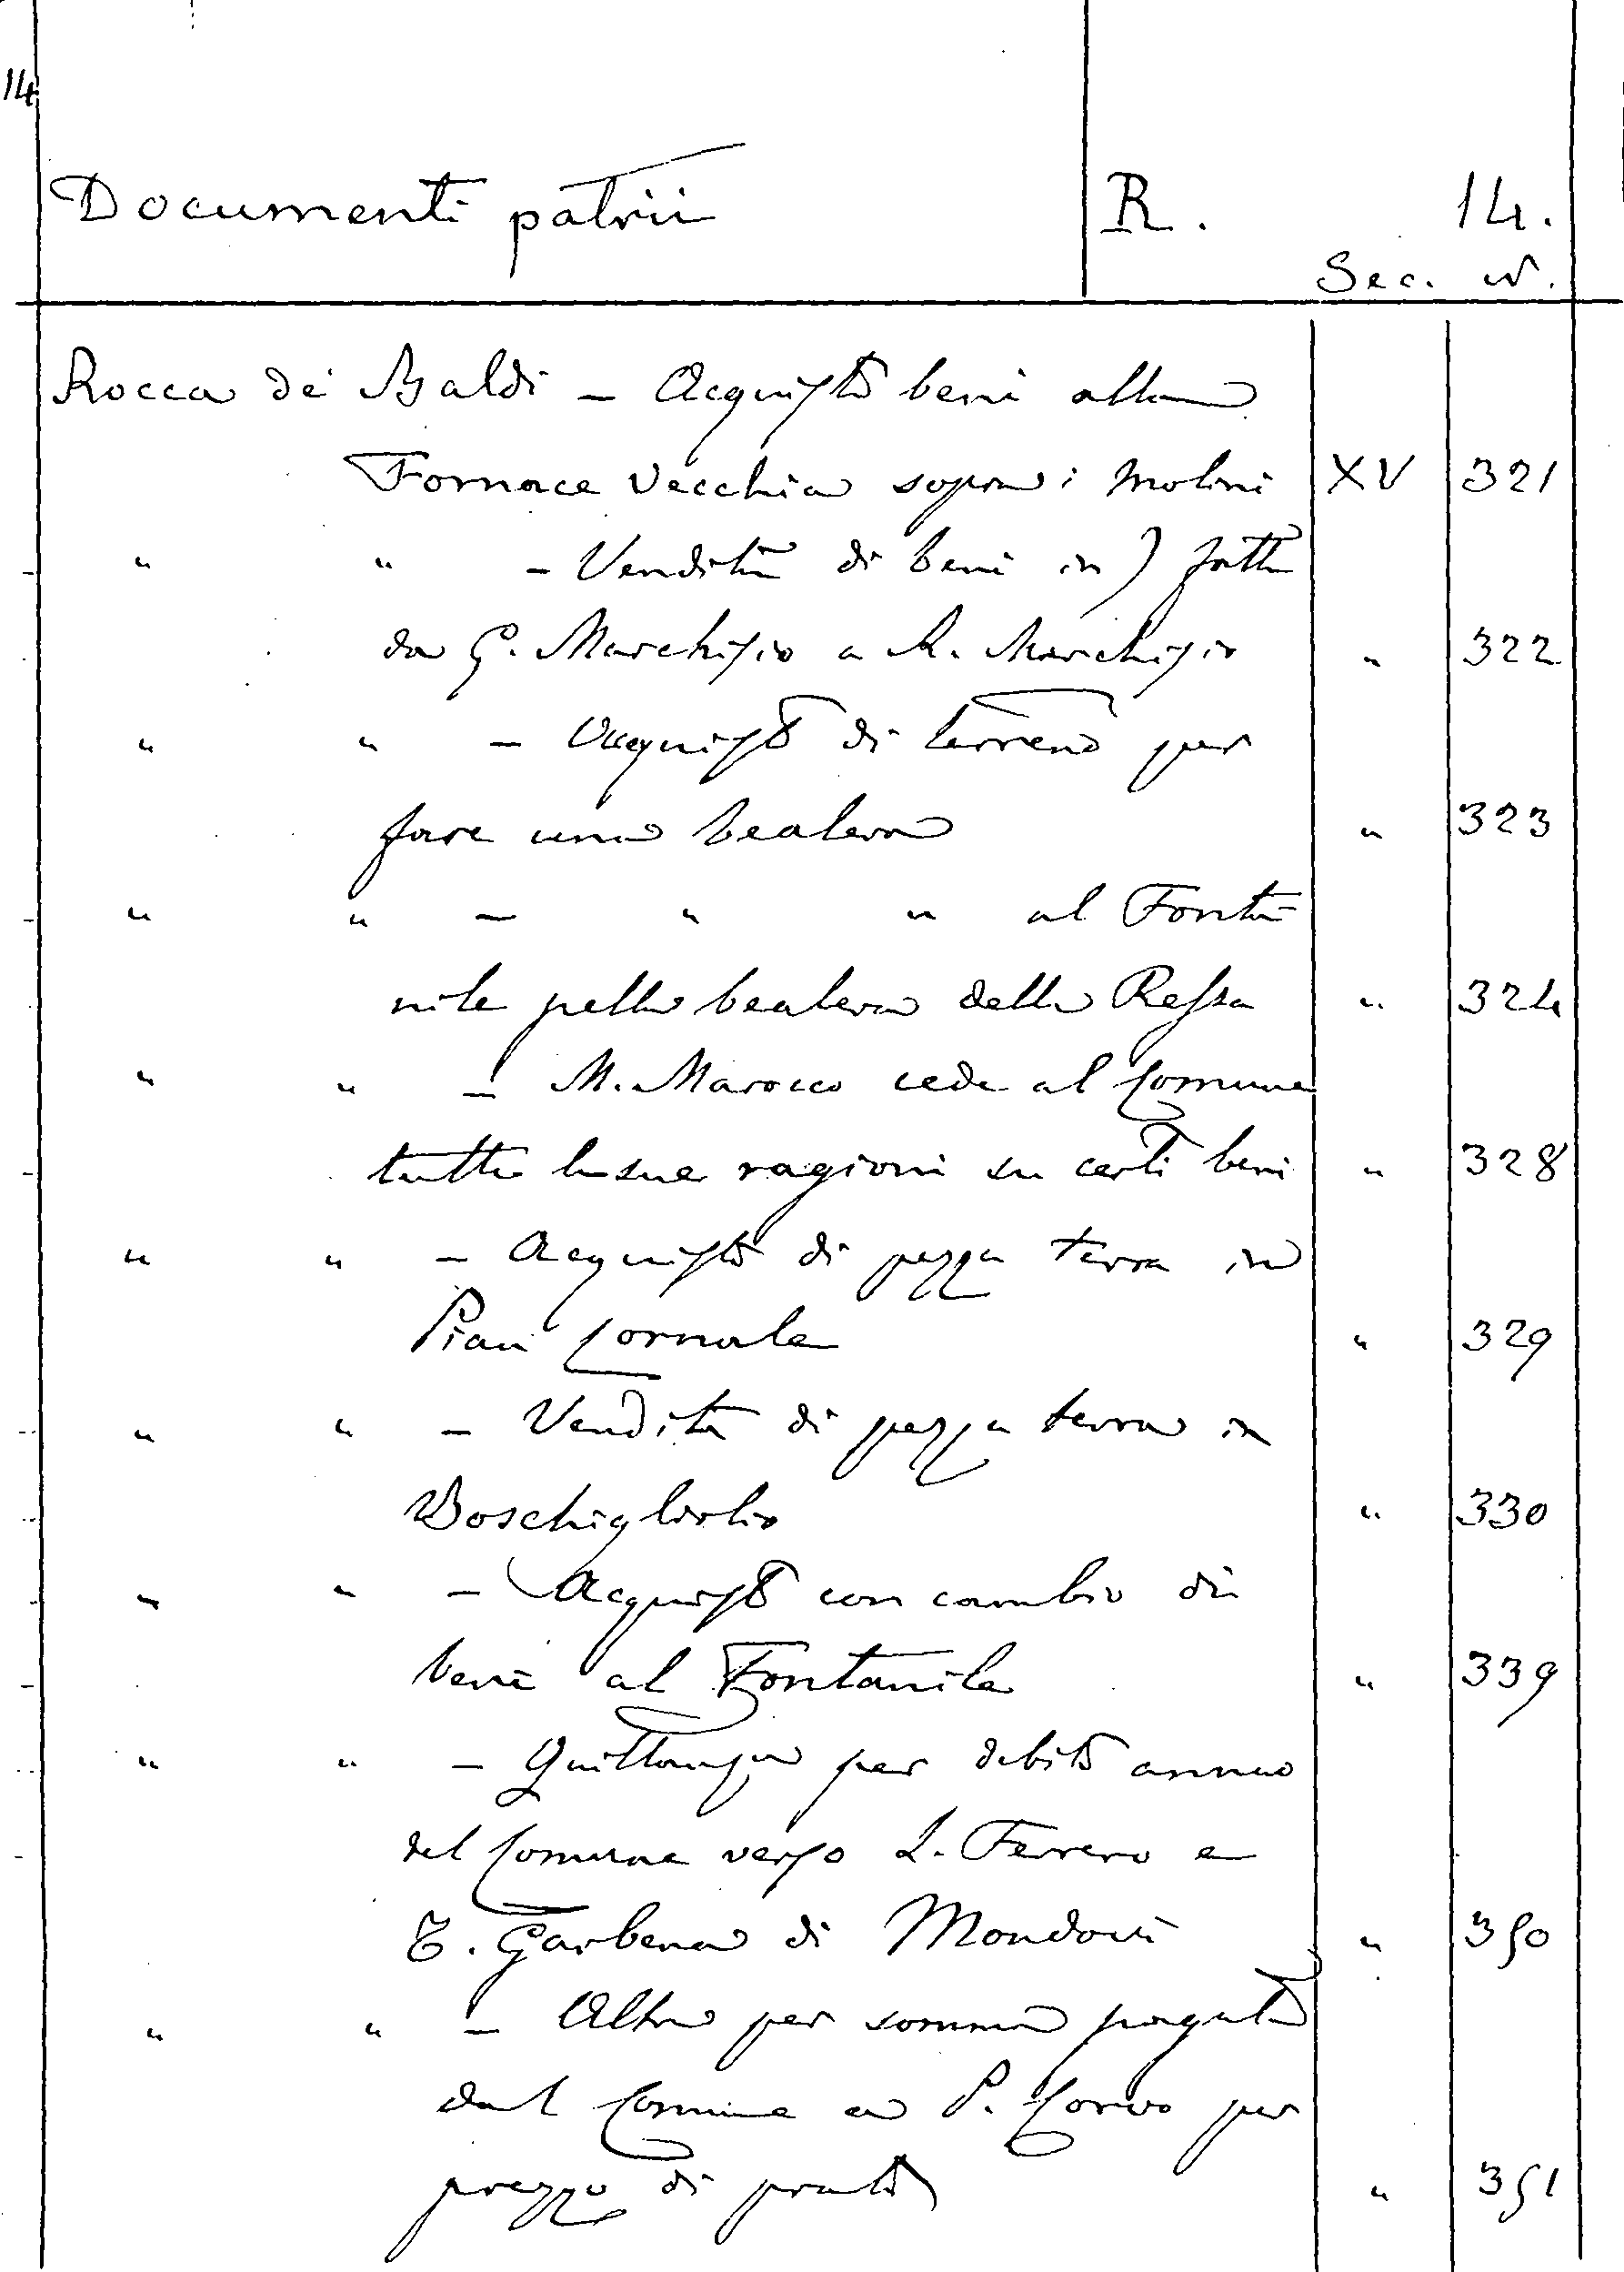 14
Documenti patrii R. 14.
Sec. N.
Rocca de' Baldi – Acquisto beni alla
Fornace vecchia sopra i molini XV 321
" " – Vendita di beni in ) fatta
da G. Marchisio a R. Marchisio " 322
" " – Acquisto di terreno per
fare una bealera " 323
" " – " " al Fonta
nile pella bealera della Ressa " 324
" " – M. Marocco cede al Comune
tutte le sue ragioni su certi beni " 328
" " – Acquisto di pezza terra in
Pian Cornale " 329
" " – Vendita di pezza terra in
Boschigliolio " 330
" " – Acquisto con cambio di
beni al Fontanile " 339
" " – Quittanza per debito annuo
del Comune verso L. Ferrero e
T. Garbena di Mondovì " 350
" " – Altra per somma pagata
dal Comune a P. Corvo per
prezzo di prato " 351